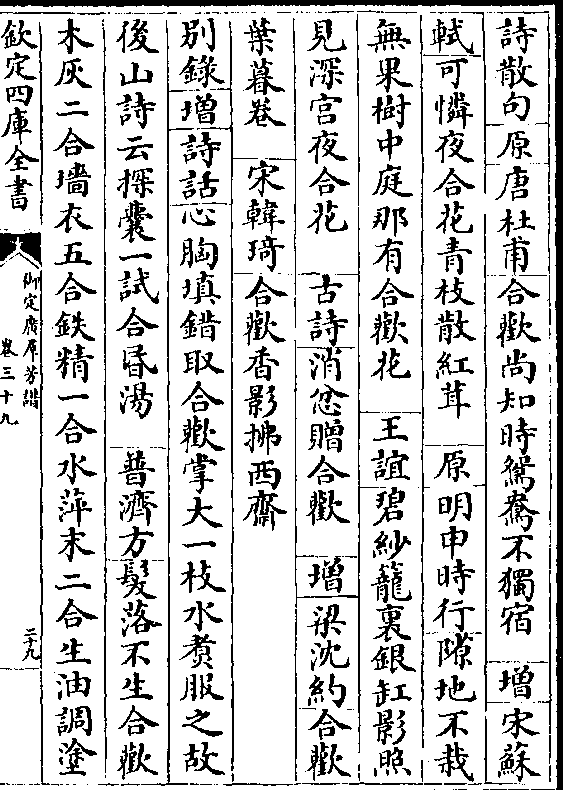 詩散句原唐杜甫合歡尚知時鴛鴦不獨宿　增宋蘇
軾可憐夜合花青枝散紅茸　原明申時行隙地不栽
無果樹中庭那有合歡花　王誼碧紗籠裏銀缸影照
見深宮夜合花　古詩消忿贈合歡　增梁沈約合歡
葉暮卷　宋韓琦合歡香影拂西齋
別錄增詩話心胸填錯取合歡掌大一枝水煑服之故
後山詩云探囊一試合昏湯　普濟方髮落不生合歡
木灰二合墻衣五合鉄精一合水萍末二合生油調塗
欽定四庫全書
御定廣羣芳譜
卷三十九
二十九